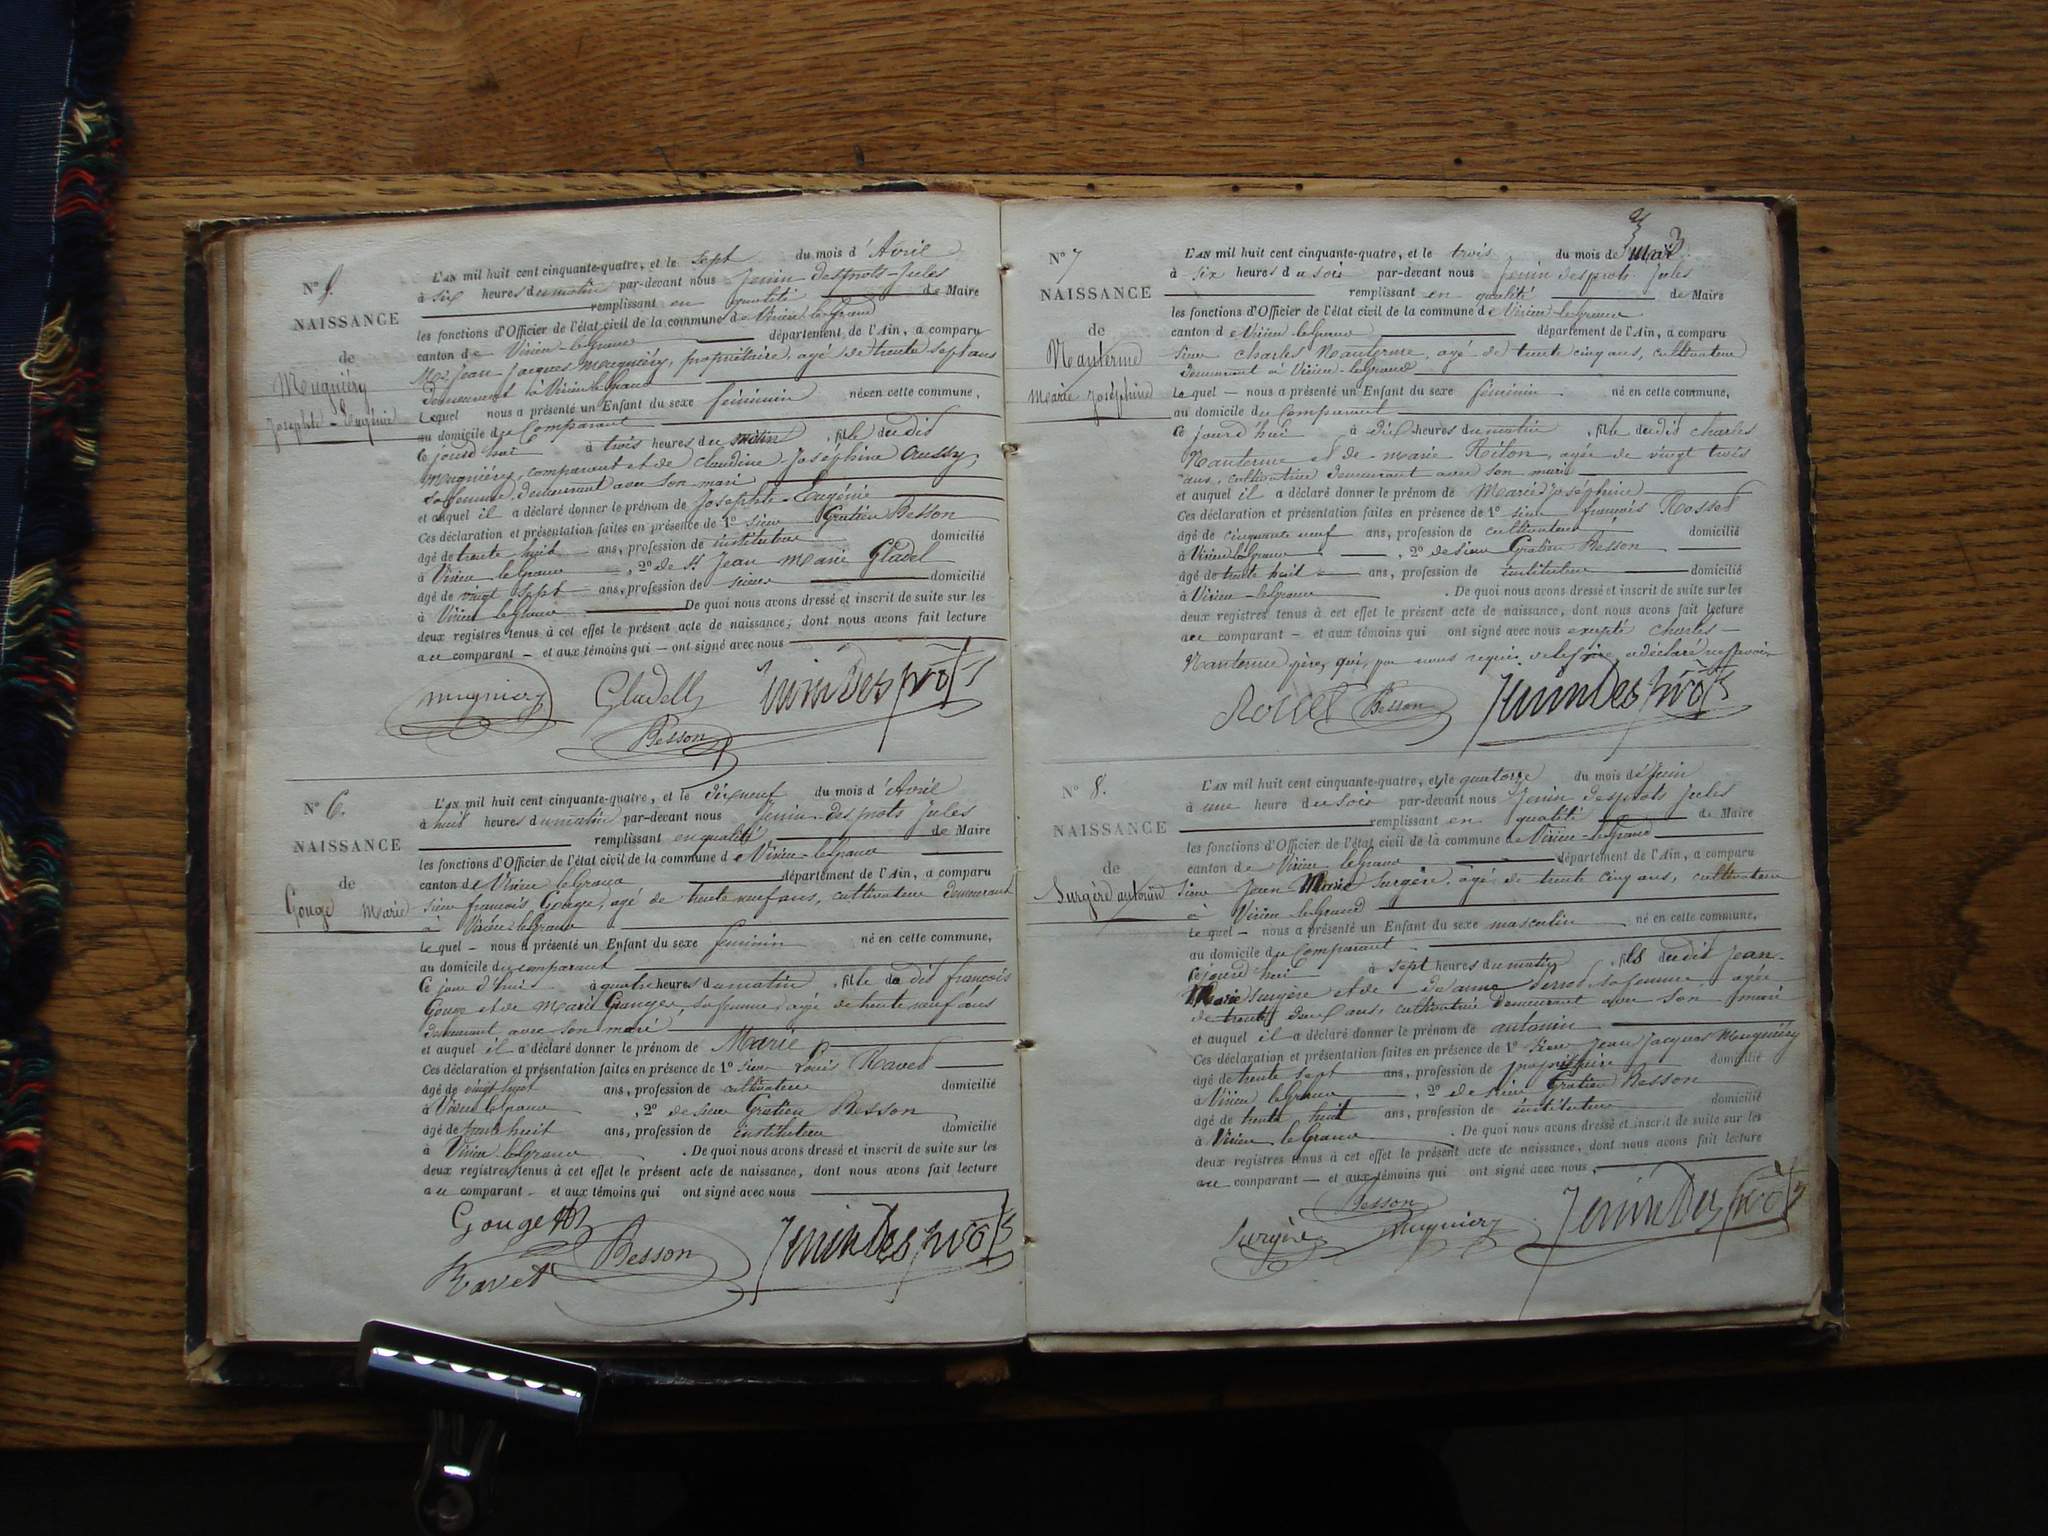 N° 5.
NAISSANCE
de
Meugniéry
Josephte-Eugénie
L'AN mil huit cent cinquante-quatre, et le sept du mois d'Avril
à six heures du matin par-devant nous Jenin desprots Jules
remplissant en qualité de Maire
les fonctions d'Officier de l'état civil de la commune de Virieu le Grand
canton de Virieu-le-Grand département de l'Ain, a comparu
Jean Jacques Meugniéry, propriétaire, agé de trente sept ans
demeurant à Virieu le Grand
lequel nous a présenté un Enfant du sexe féminin né en cette commune,
au domicile du Comparant
ce jourd'hui à trois heures du matin, fille du dit
Meugniéry, comparant et de Claudine Joséphine
sa femme, demeurant avec son mari
et auquel il a déclaré donner le prénom de Josephte-Eugénie
Ces déclaration et présentation faites en présence de 1° sieur Gratien Besson
âgé de trente huit ans, profession de instituteur domicilié
à Virieu le Grand, 2° de Sr Jean Marie Gladel
âgé de vingt sept ans, profession de domicilié
à Virieu le Grand De quoi nous avons dressé et inscrit de suite sur les
deux registres tenus à cet effet le présent acte de naissance, dont nous avons fait lecture
au comparant et aux témoins qui ont signé avec nous
Mugniery Gladel JeninDesprots
Besson
N° 6.
NAISSANCE
de
Gouge Marie
L'AN mil huit cent cinquante-quatre, et le dix neuf du mois d'Avril
à huit heures du matin par-devant nous Jenin desprots Jules
remplissant en qualité de Maire
les fonctions d'Officier de l'état civil de la commune de Virieu-le-Grand
canton de Virieu le Grand département de l'Ain, a comparu
sieur françois Gouge, agé de trente neuf ans, cultivateur demeurant
à Virieu-le-Grand
lequel nous a présenté un Enfant du sexe féminin né en cette commune,
au domicile du comparant
ce jour d'hui à quatre heures du matin, fille du dit françois
Gouge et de Marie Grange, sa femme, agé de trente neuf ans
demeurant avec son mari
et auquel il a déclaré donner le prénom de Marie
Ces déclaration et présentation faites en présence de 1° sieur Louis Ravet
âgé de vingt sept ans, profession de cultivateur domicilié
à Virieu le Grand, 2° de sieur Gratien Besson
âgé de trente huit ans, profession de instituteur domicilié
à Virieu-le-Grand. De quoi nous avons dressé et inscrit de suite sur les
deux registres tenus à cet effet le présent acte de naissance, dont nous avons fait lecture
au comparant et aux témoins qui ont signé avec nous
Gouge
Ravet Besson JeninDesprots
3
N° 7
NAISSANCE
de
Nanterme
Marie Joséphine
L'AN mil huit cent cinquante-quatre, et le trois du mois de Mai
à six heures du soir par-devant nous Jenin desprots Jules
remplissant en qualité de Maire
les fonctions d'Officier de l'état civil de la commune de Virieu-le-Grand
canton de Virieu-le-Grand département de l'Ain, a comparu
sieur Charles Nanterme, agé de trente cinq ans, cultivateur
demeurant à Virieu-le-Grand
lequel nous a présenté un Enfant du sexe féminin né en cette commune,
au domicile du Comparant
ce jourd'hui à dix heures du matin, fille du dit Charles
Nanterme et de marie, agée de vingt trois
ans, cultivatrice demeurant avec son mari
et auquel il a déclaré donner le prénom de Marie Joséphine
Ces déclaration et présentation faites en présence de 1° sieur françois Rosset
âgé de cinquante neuf ans, profession de cultivateur domicilié
à Virieu le Grand, 2° de sieur Gratien Besson
âgé de trente huit ans, profession de instituteur domicilié
à Virieu-le-Grand. De quoi nous avons dressé et inscrit de suite sur les
deux registres tenus à cet effet le présent acte de naissance, dont nous avons fait lecture
au comparant et aux témoins qui ont signé avec nous excepté Charles
Nanterme père, qui, par nous requis de le faire, a déclaré ne savoir
Besson JeninDesprots
N° 8.
NAISSANCE
de
Surgère antonin
L'AN mil huit cent cinquante-quatre, et le quatorze du mois de Juin
à une heure du soir par-devant nous Jenin desprots Jules
remplissant en qualité de Maire
les fonctions d'Officier de l'état civil de la commune de Virieu-le-Grand
canton de Virieu le Grand département de l'Ain, a comparu
sieur Jean Marie Surgère, agé de trente cinq ans, cultivateur
à Virieu le Grand
lequel nous a présenté un Enfant du sexe masculin né en cette commune,
au domicile du Comparant
ce jourd'hui à sept heures du matin, fils du dit Jean-
Marie Surgère et de sa femme, agée
de trente deux ans, cultivatrice demeurant avec son mari
et auquel il a déclaré donner le prénom de antonin
Ces déclaration et présentation faites en présence de 1° sieur Jean Jacques Meugniéry
âgé de trente sept ans, profession de propriétaire domicilié
à Virieu le Grand, 2° de sieur Gratien Besson
âgé de trente huit ans, profession de instituteur domicilié
à Virieu le Grand. De quoi nous avons dressé et inscrit de suite sur les
deux registres tenus à cet effet le présent acte de naissance, dont nous avons fait lecture
au comparant et aux témoins qui ont signé avec nous,
Besson
Surgère Mugniery JeninDesprots